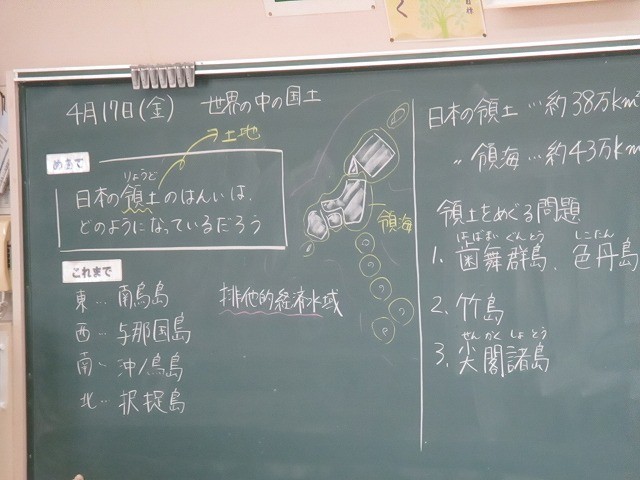 4月17日(金) 世界の中の国土
土地
めあて
りょうど
日本の領土のはんいは、
どのようになっているだろう
これまで
東… 南鳥島
西… 与那国島
南… 沖ノ鳥島
北… 択捉島
排他的経済水域
領海
日本の領土…約38万km²
〃 領海…約43万km
領土をめぐる問題
はぼまい ぐんとう しこたん
1. 歯舞群島、色丹島
2. 竹島
せんかくしょとう
3. 尖閣諸島